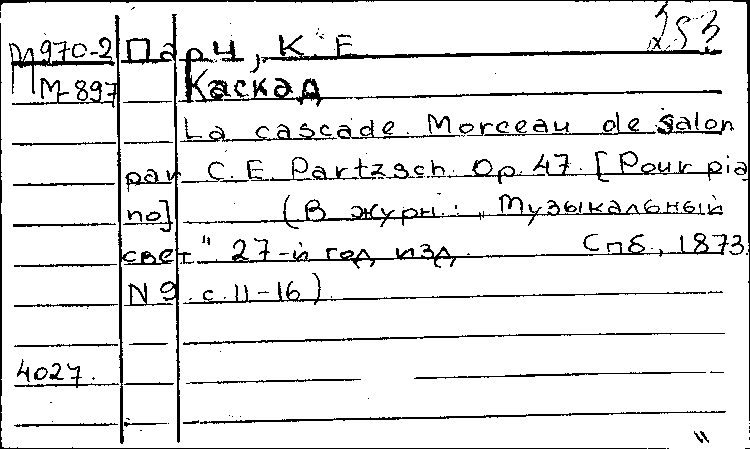 253
М970-2 Парц, К. Е.
М-897 Каскад
La cascade. Morceau de salon
par C. E. Partzsch. Op. 47. [Pour pia
no] (В журн.: „Музыкальный
свет" 27-й год изд. Спб., 1873.
N 9. с. 11-16)
4027.